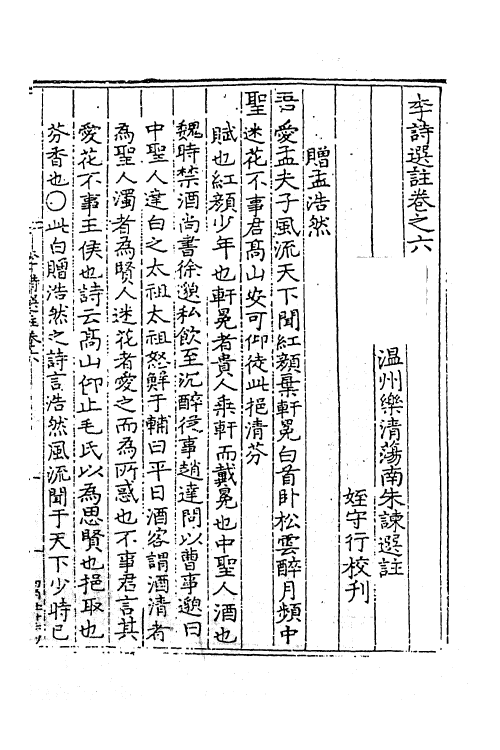 李詩選註卷之六
温州樂清蕩南朱諫選註
姪守行校刊
贈孟浩然
吾愛孟夫子風流天下聞紅顏棄軒冕白首卧松雲醉月頻中
聖迷花不事君髙山安可仰徒此挹清芬
賦也紅顏少年也軒冕者貴人乘軒而戴冕也中聖人酒也
魏時禁酒尚書徐邈私飲至沉醉從事趙達問以曹事邈曰
中聖人達白之太祖太祖怒鮮于輔曰平日酒客謂酒清者
為聖人濁者為賢人迷花者愛之而為所惑也不事君言其
愛花不事王侯也詩云髙山仰止毛氏以為思賢也挹取也
芬香也○此白贈浩然之詩言浩然風流聞于天下少時已